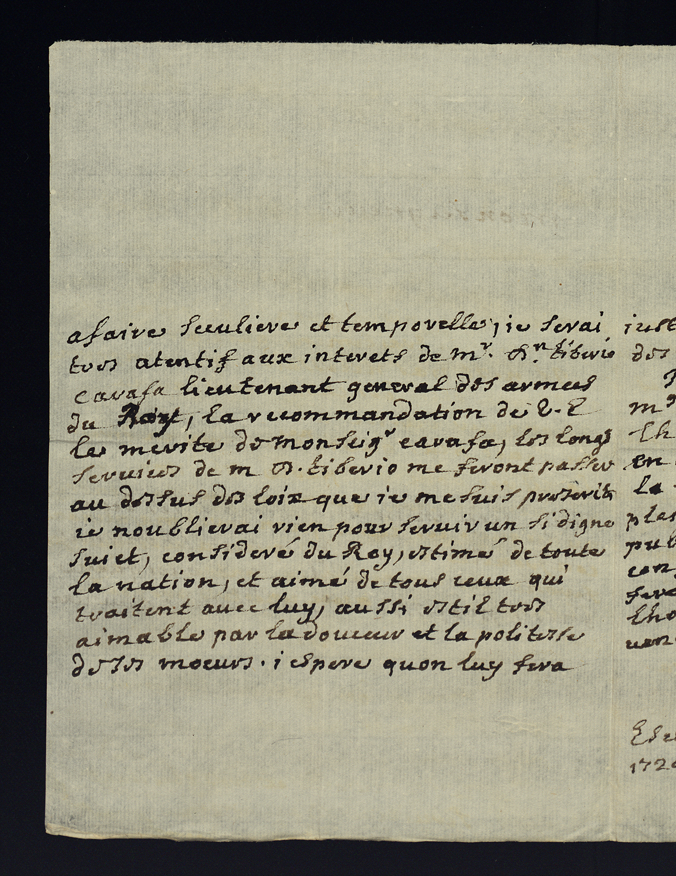 afaire seculiere et temporelle, ie serai
tres atentif aux interets de mr. Dn. tiberio
carafa lieutenant general des armees
du Roy, la recommandation de V. E
le merite de monseigr carafa, les longs
services de m D. tiberio me feront passer
au dessus des loix que ie me suis prescrit
ie noublierai rien pour servir un si digne
suiet, consideré du Roy, estimé de toute
la nation, et aimé de tous ceux qui
traitent avec luy, aussi estil tres
aimable par la douceur et la politesse
de ses moeurs. iespere quon luy fera
iust
des
m
lh
en
la
ples
pub
con
fere
lho
ven
172